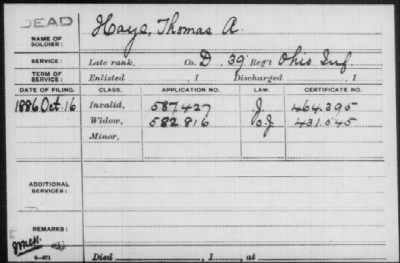 DEAD
Hays, Thomas A.
NAME OF SOLDIER:
SERVICE: Late rank, Co. D, 39 Reg't Ohio Inf.
TERM OF SERVICE: Enlisted , 1 Discharged , 1
DATE OF FILING. CLASS. APPLICATION NO. LAW. CERTIFICATE NO.
1886 Oct. 16 Invalid, 587427 J. 464.395
Widow, 582816 431.545
Minor,
ADDITIONAL SERVICES:
REMARKS:
Died , 1 , at